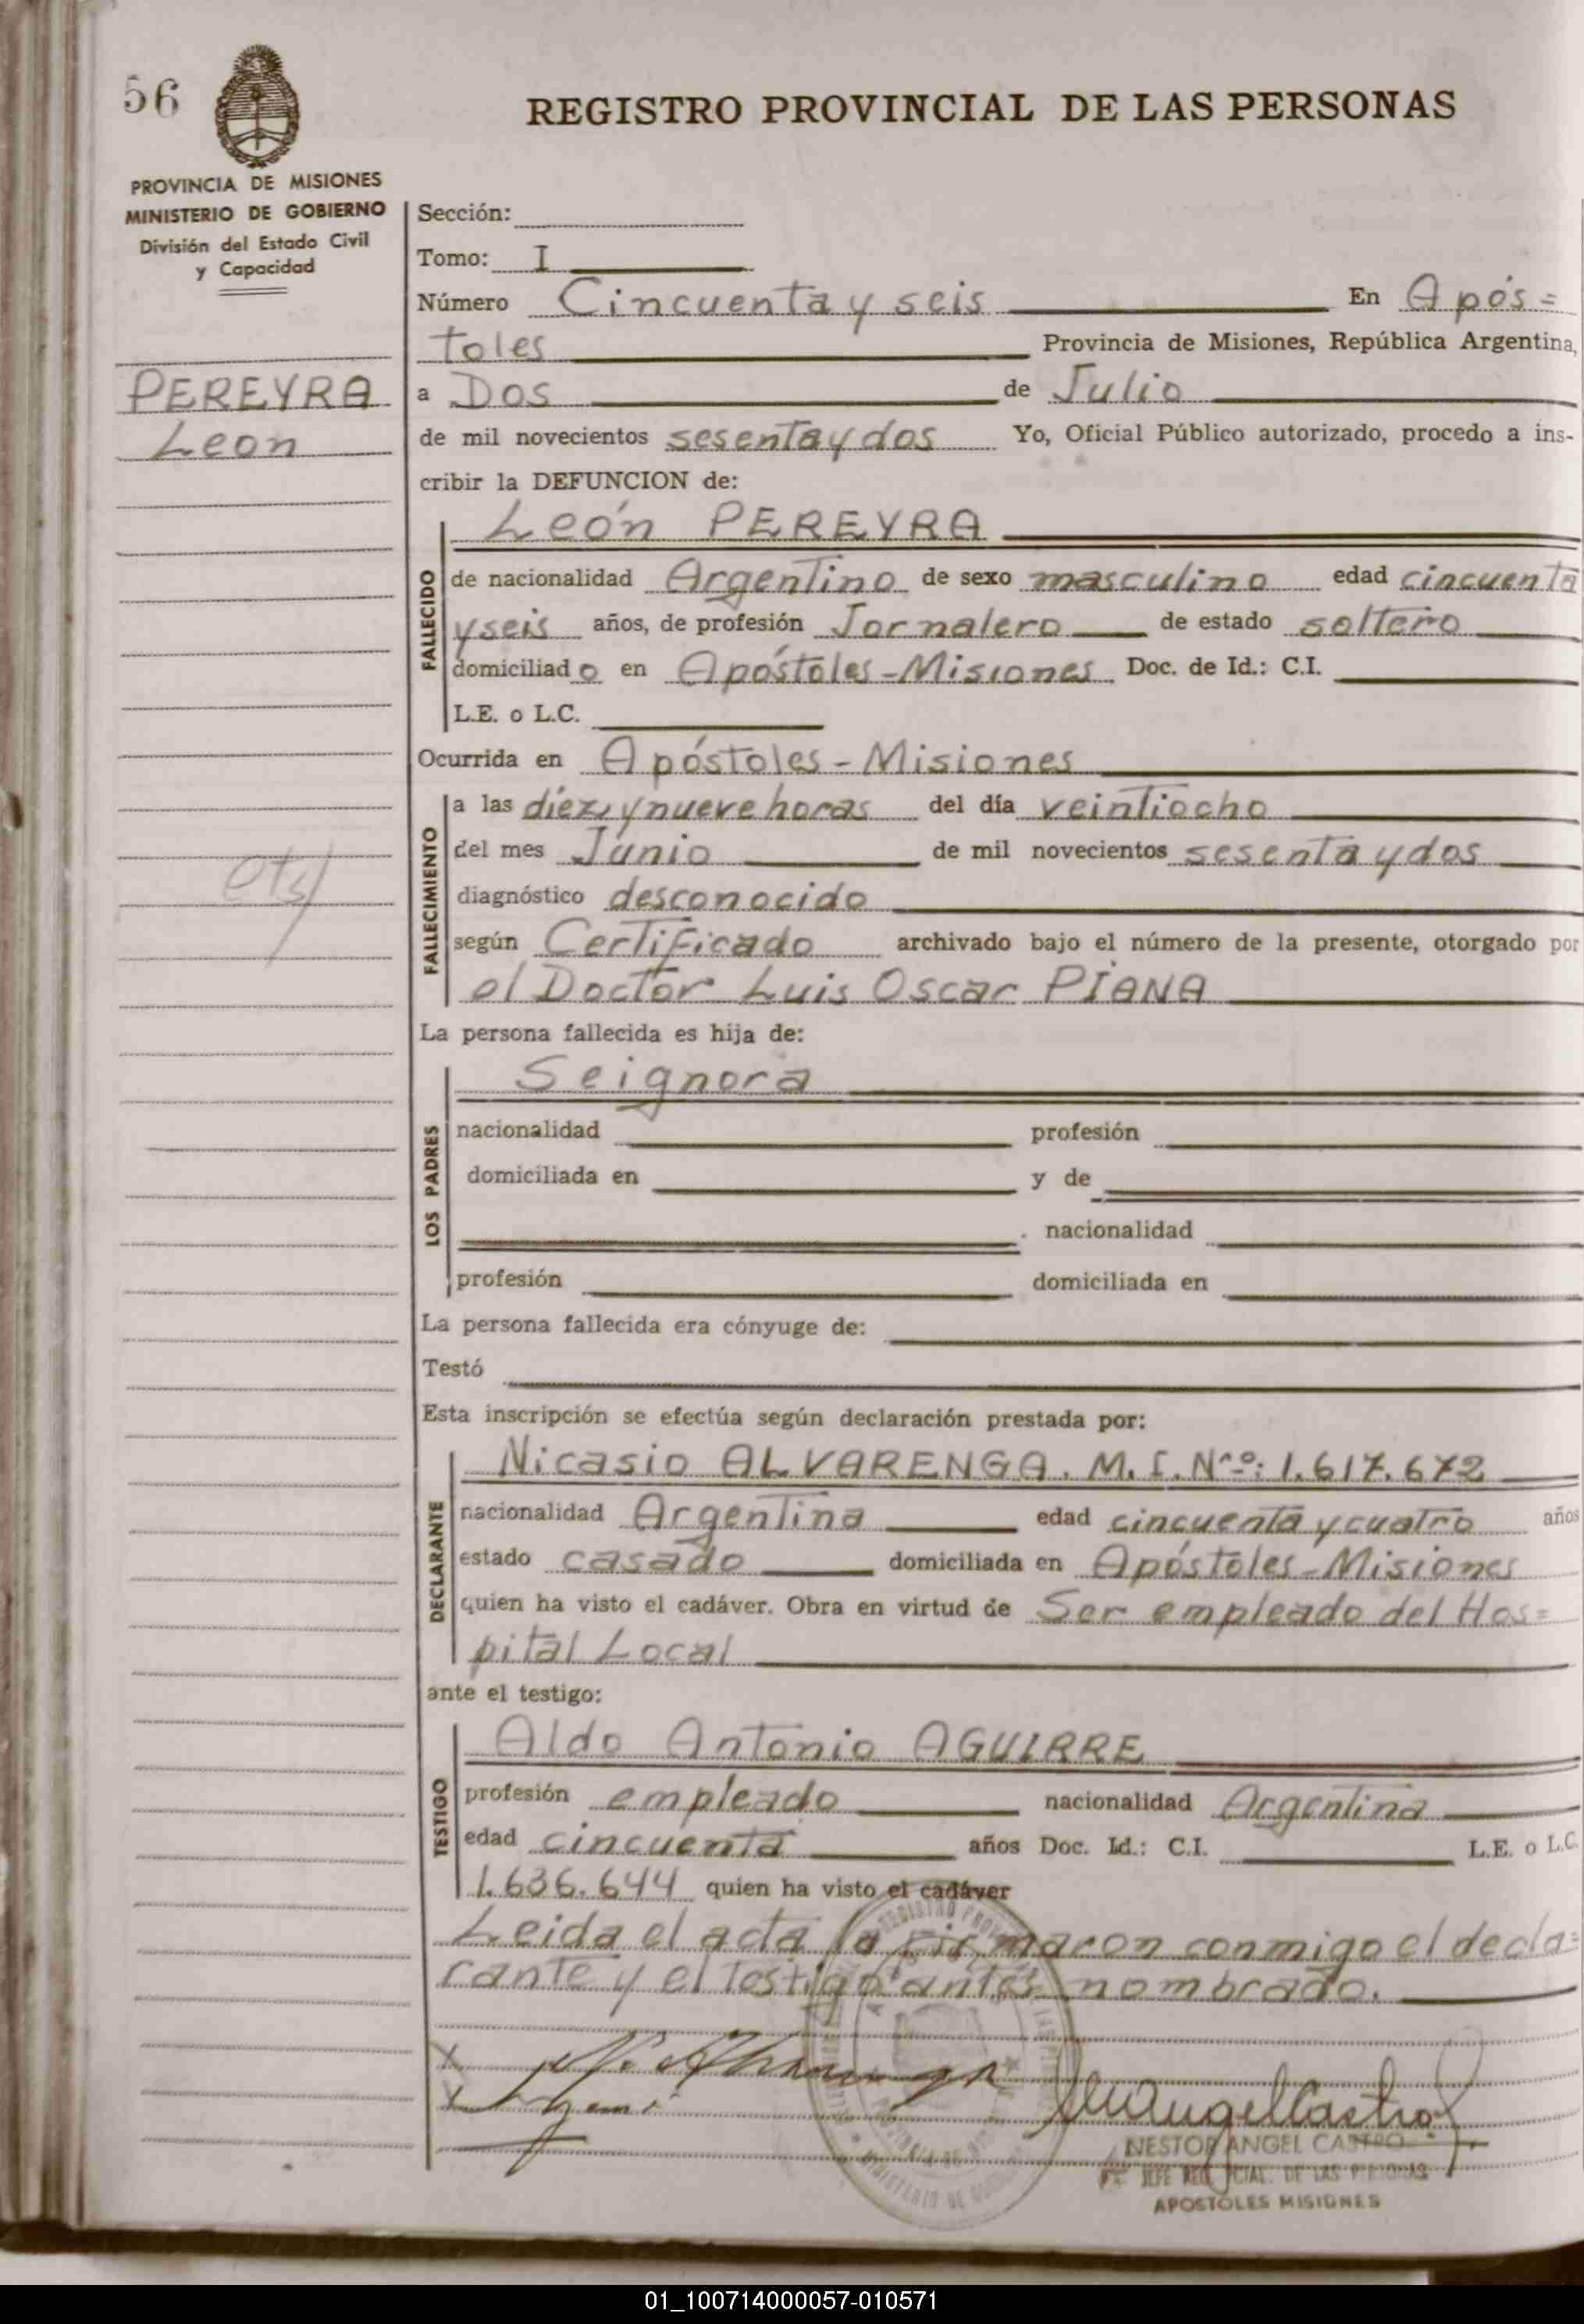 56
REGISTRO PROVINCIAL DE LAS PERSONAS
PROVINCIA DE MISIONES
MINISTERIO DE GOBIERNO
División del Estado Civil
y Capacidad
PEREYRA
Leon
Sección:
Tomo: I
Número Cincuenta y seis En Após=
toles Provincia de Misiones, República Argentina,
a Dos de Julio
de mil novecientos sesenta y dos Yo, Oficial Público autorizado, procedo a ins-
cribir la DEFUNCION de:
FALLECIDO
León PEREYRA
de nacionalidad Argentino de sexo masculino edad cincuenta
y seis años, de profesión Jornalero de estado soltero
domiciliado en Apóstoles-Misiones Doc. de Id.: C.I.
L.E. o L.C.
Ocurrida en Apóstoles-Misiones
FALLECIMIENTO
a las diez y nueve horas del día veintiocho
del mes Junio de mil novecientos sesenta y dos
diagnóstico desconocido
según Certificado archivado bajo el número de la presente, otorgado por
el Doctor Luis Oscar PIANA
La persona fallecida es hija de:
LOS PADRES
Seignora
nacionalidad profesión
domiciliada en y de
nacionalidad
profesión domiciliada en
La persona fallecida era cónyuge de:
Testó
Esta inscripción se efectúa según declaración prestada por:
DECLARANTE
Nicasio ALVARENGA. M. I. Nº: 1.617.672
nacionalidad Argentina edad cincuenta y cuatro años
estado casado domiciliada en Apóstoles-Misiones
quien ha visto el cadáver. Obra en virtud de Ser empleado del Hos=
pital Local
ante el testigo:
TESTIGO
Aldo Antonio AGUIRRE
profesión empleado nacionalidad Argentina
edad cincuenta años Doc. Id.: C.I. L.E. o L.C.
1.636.644 quien ha visto el cadáver
Leida el acta la firmaron conmigo el decla=
rante y el testigo antes nombrado.
NESTOR ANGEL CASTRO
JEFE REG. PCIAL. DE LAS PERSONAS
APOSTOLES MISIONES
01_100714000057-010571